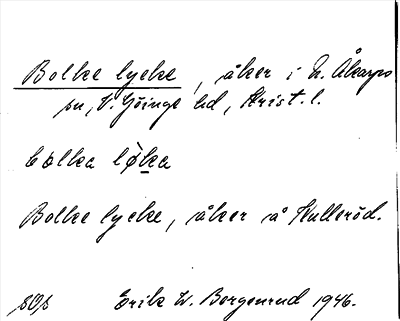 Bolke lycke, åker i N. Åkarps
sn, V. Göinge hd, Krist. l.
bolka lø̀ka
Bolke lycke, åker å Hulleröd.
Erik W. Borgenrud 1946.